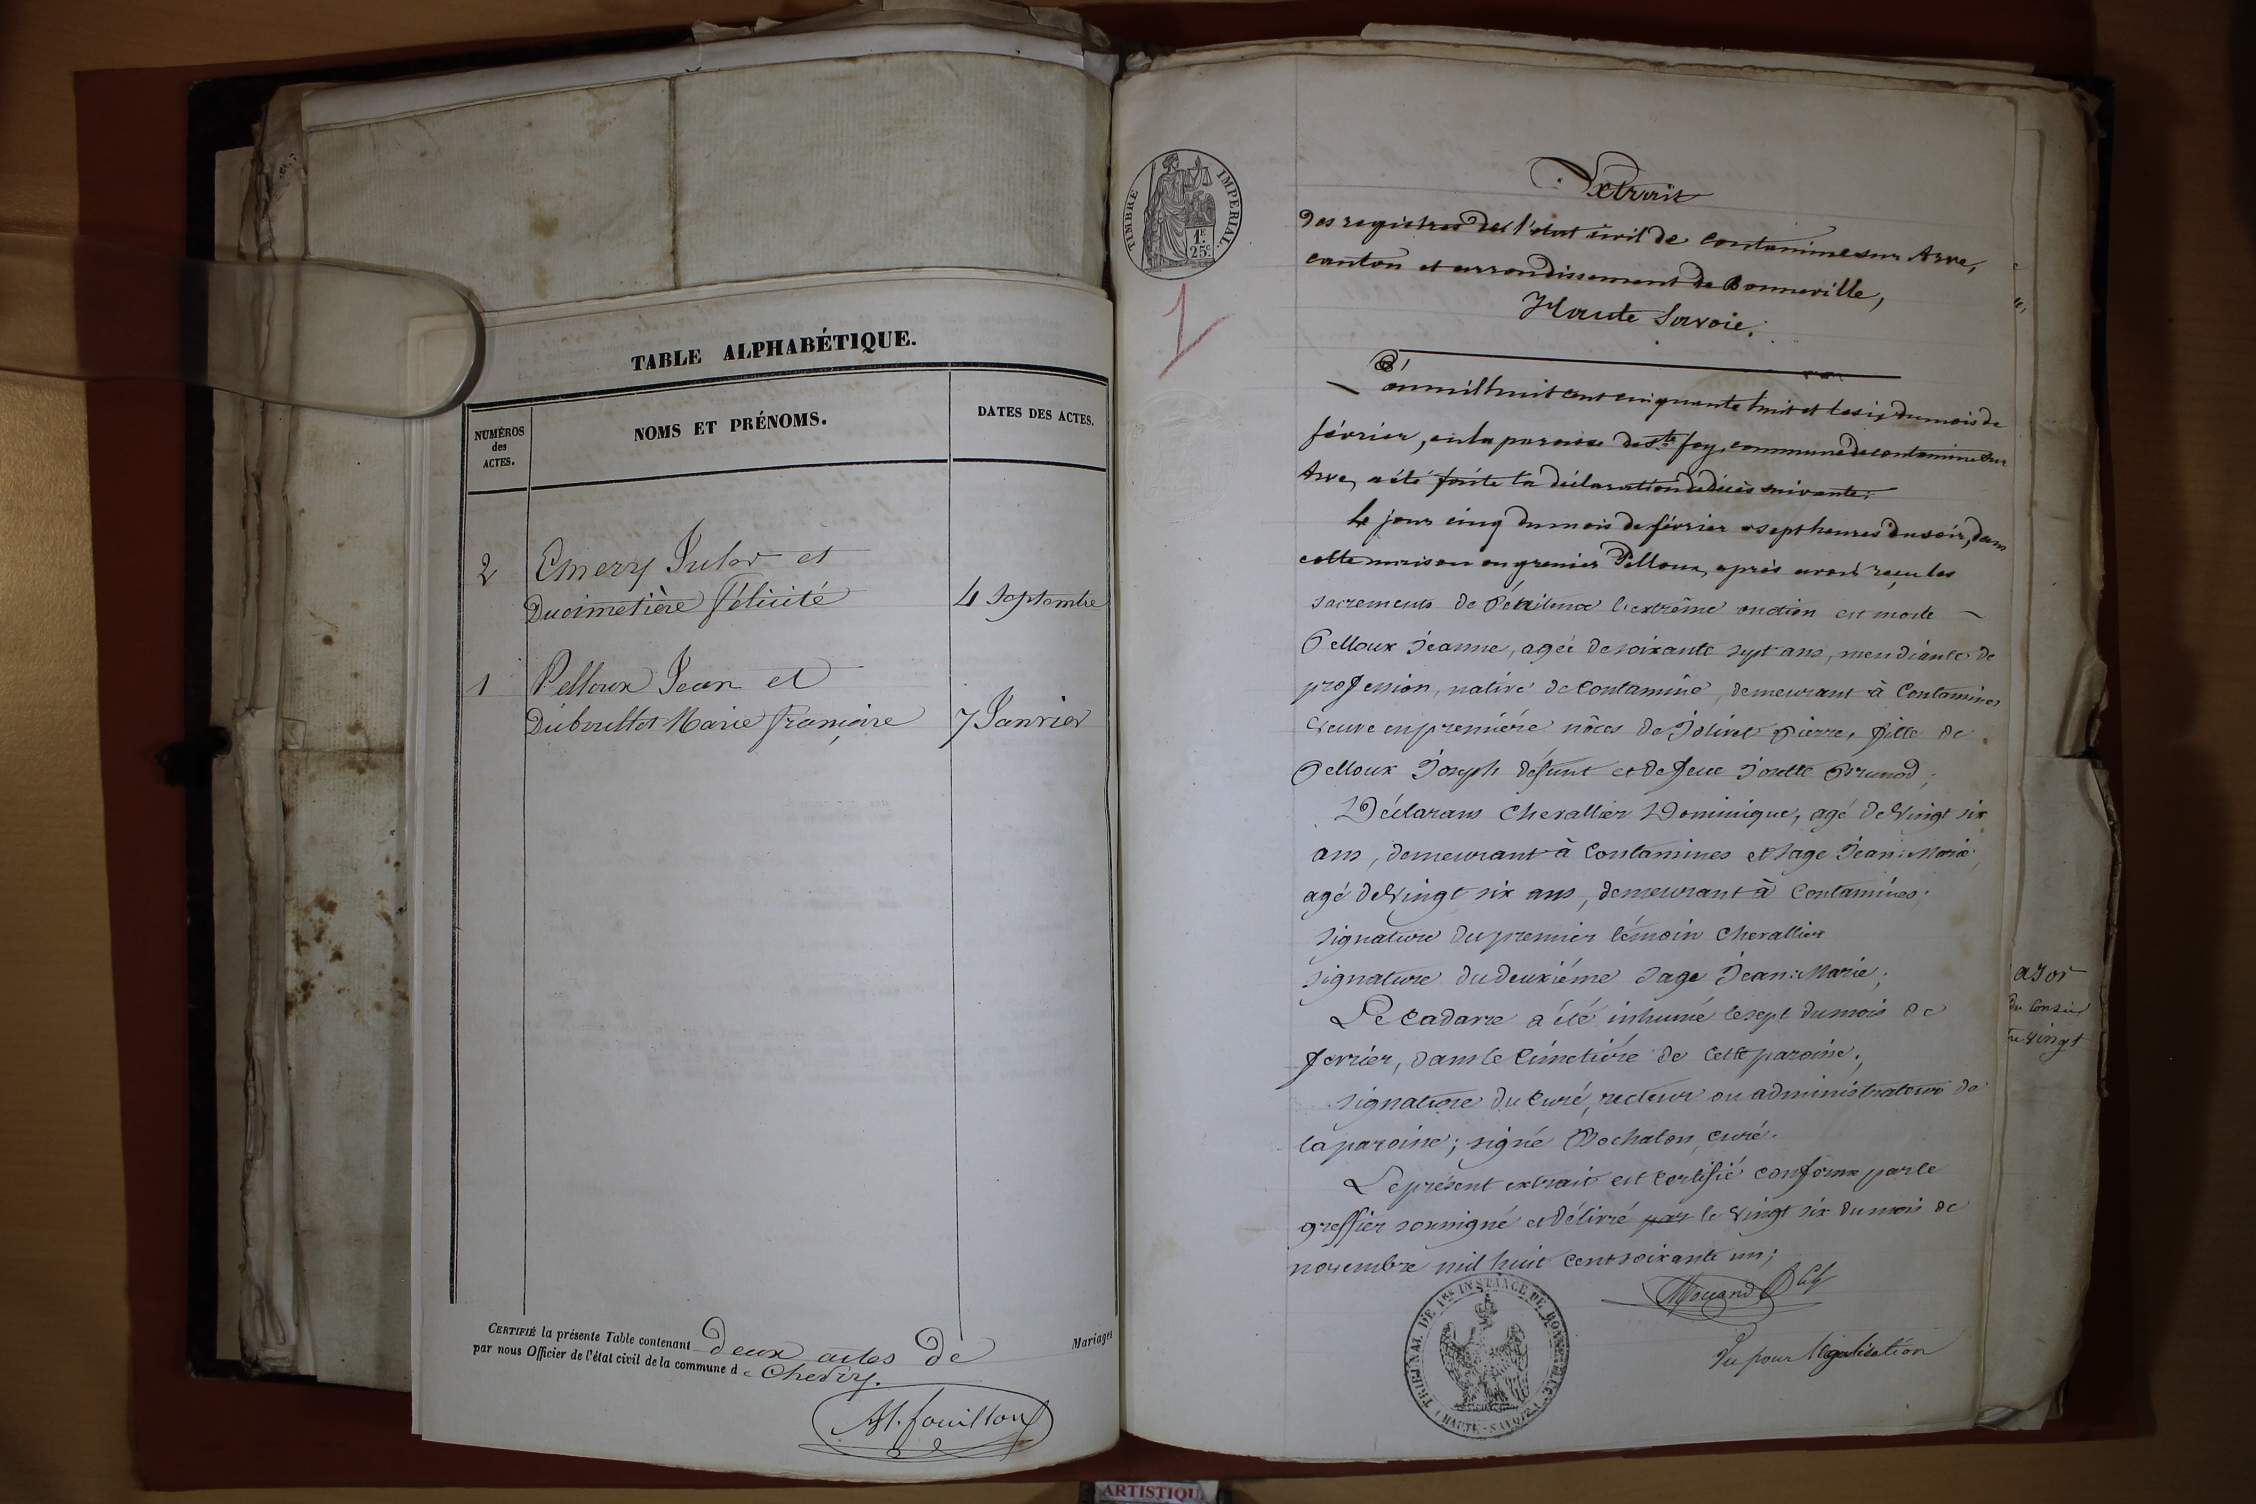 TABLE ALPHABÉTIQUE.
NUMÉROS
des
ACTES.
NOMS ET PRÉNOMS.
DATES DES ACTES.
2 Emery Jules et
Ducimetière Félicité 4 Septembre
1 Pelloux Jean et
Duboullot Marie Françoise 7 Janvier
CERTIFIÉ la présente Table contenant deux actes de Mariages
par nous Officier de l'état civil de la commune d e Chevry.
fouilloux
TIMBRE IMPERIAL.
1F.
25c.
1
Extrait
des registres de l'état civil de Contamine sur Arve,
canton et arrondissement de Bonneville,
Haute Savoie.
L'an mil huit cent cinquante huit et le six du mois de
février, en la paroisse de Ste foy, commune de contamine sur
Arve, a été faite la déclaration de décès suivante:
Le jour cinq du mois de février a sept heures du soir, dans
cette maison au grenier Pelloux, après avoir reçu les
sacrements de Pénitence l'extrême onction est morte
Pelloux Jeanne, agée de soixante sept ans, mendiante de
profession, native de Contamine, demeurant à Contamines
veuve en première nôces de Jolivet Pierre, fille de
Pelloux Joseph défunt et de feue Josette
Déclarans Chevallier Dominique, agé de vingt six
ans, demeurant à Contamines et Sage Jean-Marie,
agé de vingt six ans, demeurant à Contamines;
signature du premier témoin Chevallier
signature du deuxième Sage Jean-Marie;
Le cadavre a été inhumé le sept du mois de
fevrier, dans le Cimetière de cette paroisse;
signature du curé, recteur ou administrateur de
la paroisse; signé Bochaton, curé.
Le présent extrait est certifié conforme par le
greffier soussigné et délivré par le vingt six du mois de
novembre mil huit cent soixante un;
Vu pour légalisation
TRIBUNAL DE 1RE INSTANCE DE BONNEVILLE
(HAUTE-SAVOIE)
du Consei
vingt
ARTISTIQU